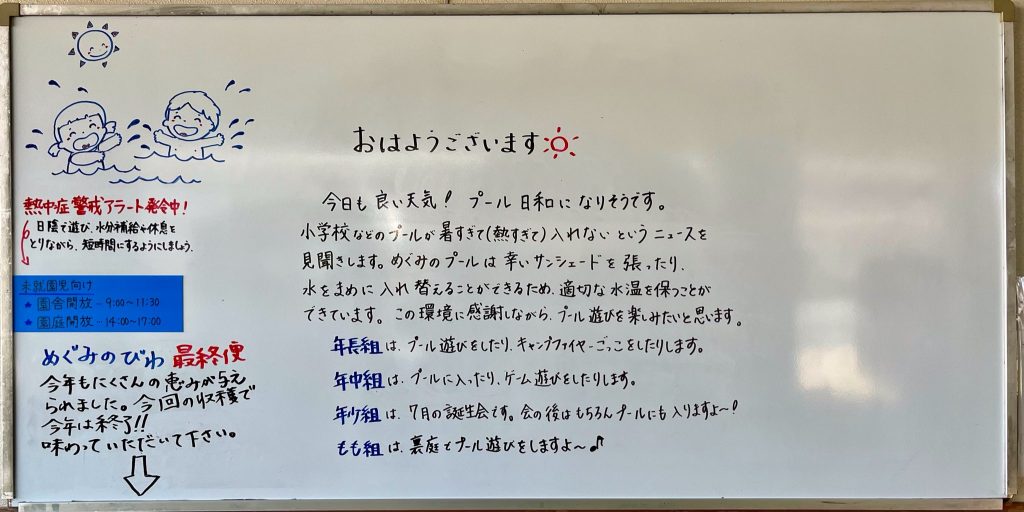 熱中症警戒アラート発令中!
日陰で遊び、水分補給や休息を
とりながら、短時間にするようにしましょう。
未就園児向け
★ 園舎開放 - 9:00〜11:30
★ 園庭開放 - 14:00〜17:00
めぐみのびわ 最終便
今年もたくさんの恵みが与え
られました。今回の収穫で
今年は終了!!
味わっていただいて下さい。
おはようございます
今日も良い天気! プール日和になりそうです。
小学校などのプールが暑すぎて(熱すぎて)入れないというニュースを
見聞きします。めぐみのプールは幸いサンシェードを張ったり、
水をまめに入れ替えることができるため、適切な水温を保つことが
できています。この環境に感謝しながら、プール遊びを楽しみたいと思います。
年長組は、プール遊びをしたり、キャンプファイヤーごっこをしたりします。
年中組は、プールに入ったり、ゲーム遊びをしたりします。
年少組は、7月の誕生会です。会の後はもちろんプールにも入りますよ〜!
もも組は、裏庭でプール遊びをしますよ〜♪